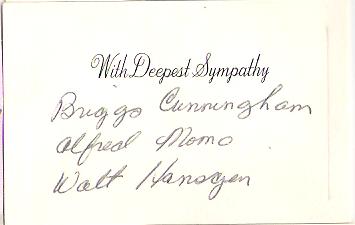 With Deepest Sympathy
Briggs Cunningham
Alfred Momo
Walt Hansgen